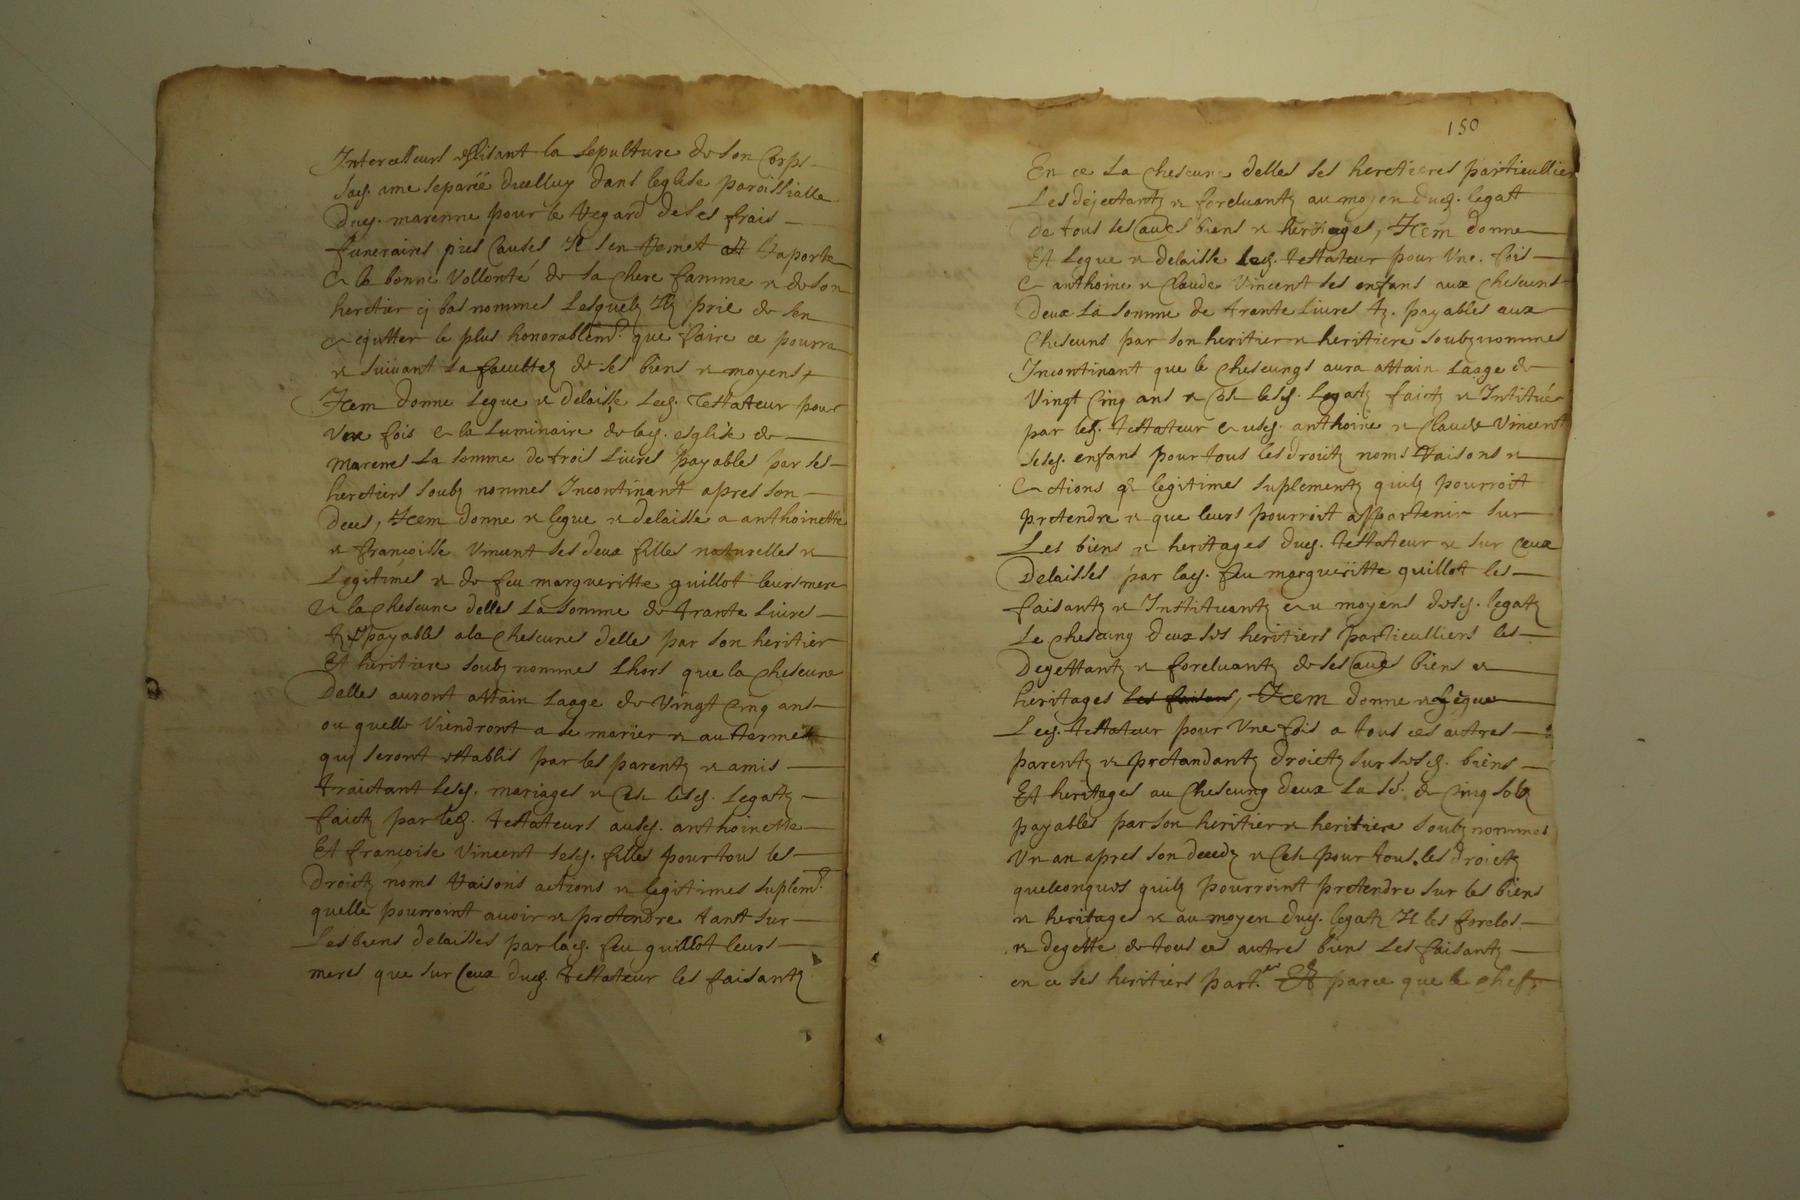 Intercesseurs esslisant la sepulture de son Corps
sad. ame separéé dicelluy dans leglise paroissialle
dud. marenne pour le Regard de ses frais
funeraires pies Causes Il sen Remet et raporte
a la bonne Vollonté de sa chere famme & de son
heretier cy bas nommes Lesquelz Ilz prie de sen
acquitter le plus honorablemt. que faire ce pourra
& suivant sa facultez de ses biens & moyens,
Item donne legue & delaisse led. Testateur pour
Une fois a la Luminaire de lad. esglise de
marenes La somme de trois Livres payables par ses
heretiers soubz nommes Incontinant apres son
deces, Item donne & legue & delaisse a anthoinette
& francoisse Vincent ses deux filles naturelles &
Legitimes & de feu margueritte guillot leurs mere
& la Chescune delles La somme de trante Livres
tz payables a la Chescunes delles par son heritier
Et heritiere soubz nommes Lhors que la Chescune
Delles auront attain Laage de Vingt Cinq ans
ou quelle Viendront a se marier & au termes
quj seront establis par les parentz & amis
traictant lesd. mariages & Cest lesd. Legatz
faictz par led. testateurs ausd. anthoinette
Et françoise Vincent sesd. filles pour tous les
Droictz noms Raisons actions & legitimes suplemt.
quelle pourroint avoir & pretendre tant sur
Les biens delaisses par lad. feu guillot leurs
meres que sur Ceux dud. testateur les faisantz
150
En ce La Chescune delles ses heretieres particullier
Les dejectantz & forcluantz au moyen dud. legat
de tous ses aues biens & heritages, Item donne
Et Legue & delaisse led. testateur pour Vne fois
a anthoine & Claude Vincent ses enfans aux Chescuns
Deux La somme de trante Livres tz. payables aux
Chescuns par son heritier & heritiere soubz nommes
Incontinant que le Chescungs aura attain Laage de
Vingt Cinq ans & Cest lesd. Legatz faictz & Intitués
par led. testateur a usd. anthoine & Claude Vincent
sesd. enfans pour tous les droictz noms Raisons &
actions & legitimes suplementz quilz pourroit
pretendre & que leurs pourroit appartenir sur
Les biens & heritages dud. testateur & sur ceux
Delaisses par lad. feu margueritte guillot les
faisantz & Instituantz au moyens desd. legatz
Le Chescung deux ses heritiers particulliers les
Degettantz & forcluantz de ses aues biens &
heritages les faisans, Item donne & legue
Led. testateur pour Vne fois a tous ces autres
parentz & pretandantz droictz sur sesd. biens
Et heritages au Chescung deux La se. de Cinq solz
payables par son heritier & heritiere soubz nommes
Vn an apres son decedz & Cest pour tous les droictz
quelconques quilz pourroint pretendre sur les biens
& heritages & au moyen dud. legatz Il les forclos
& degette de tous ces autres biens Les faisantz
en ce ses heritiers part.er Et parce que le Chefz